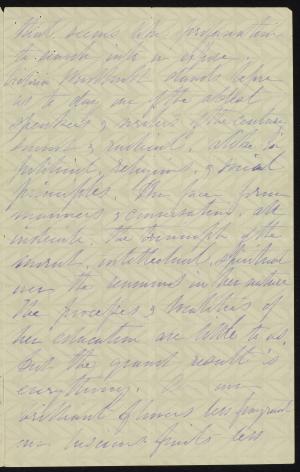 that seems like preparation
to
before
us to day one of the ablest
speakers & writers of the century
sound & radical, alike in
political, religious, & social
principles. Her face form
manners & conversation, all
indicate, the triumph of the
moral, intellectual, spiritual
over the sensuous in her nature
The processes & realities of
her education are little to us,
but the grand result is
everything.
brilliant flowers less fragrant
luscious fruits less